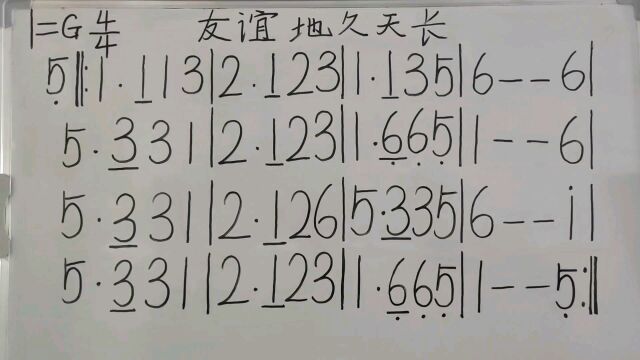 1=G 4/4 友谊地久天长
5̣‖:1·1̲ 1 3|2·1̲ 2 3|1·1̲ 3 5|6--6|
5·3̲ 3 1|2·1̲ 2 3|1·6̲̣ 6̣ 5̣|1--6|
5·3̲ 3 1|2·1̲ 2 6|5·3̲ 3 5|6--i|
5·3̲ 3 1|2·1̲ 2 3|1·6̲̣ 6̣ 5̣|1--5̣:‖